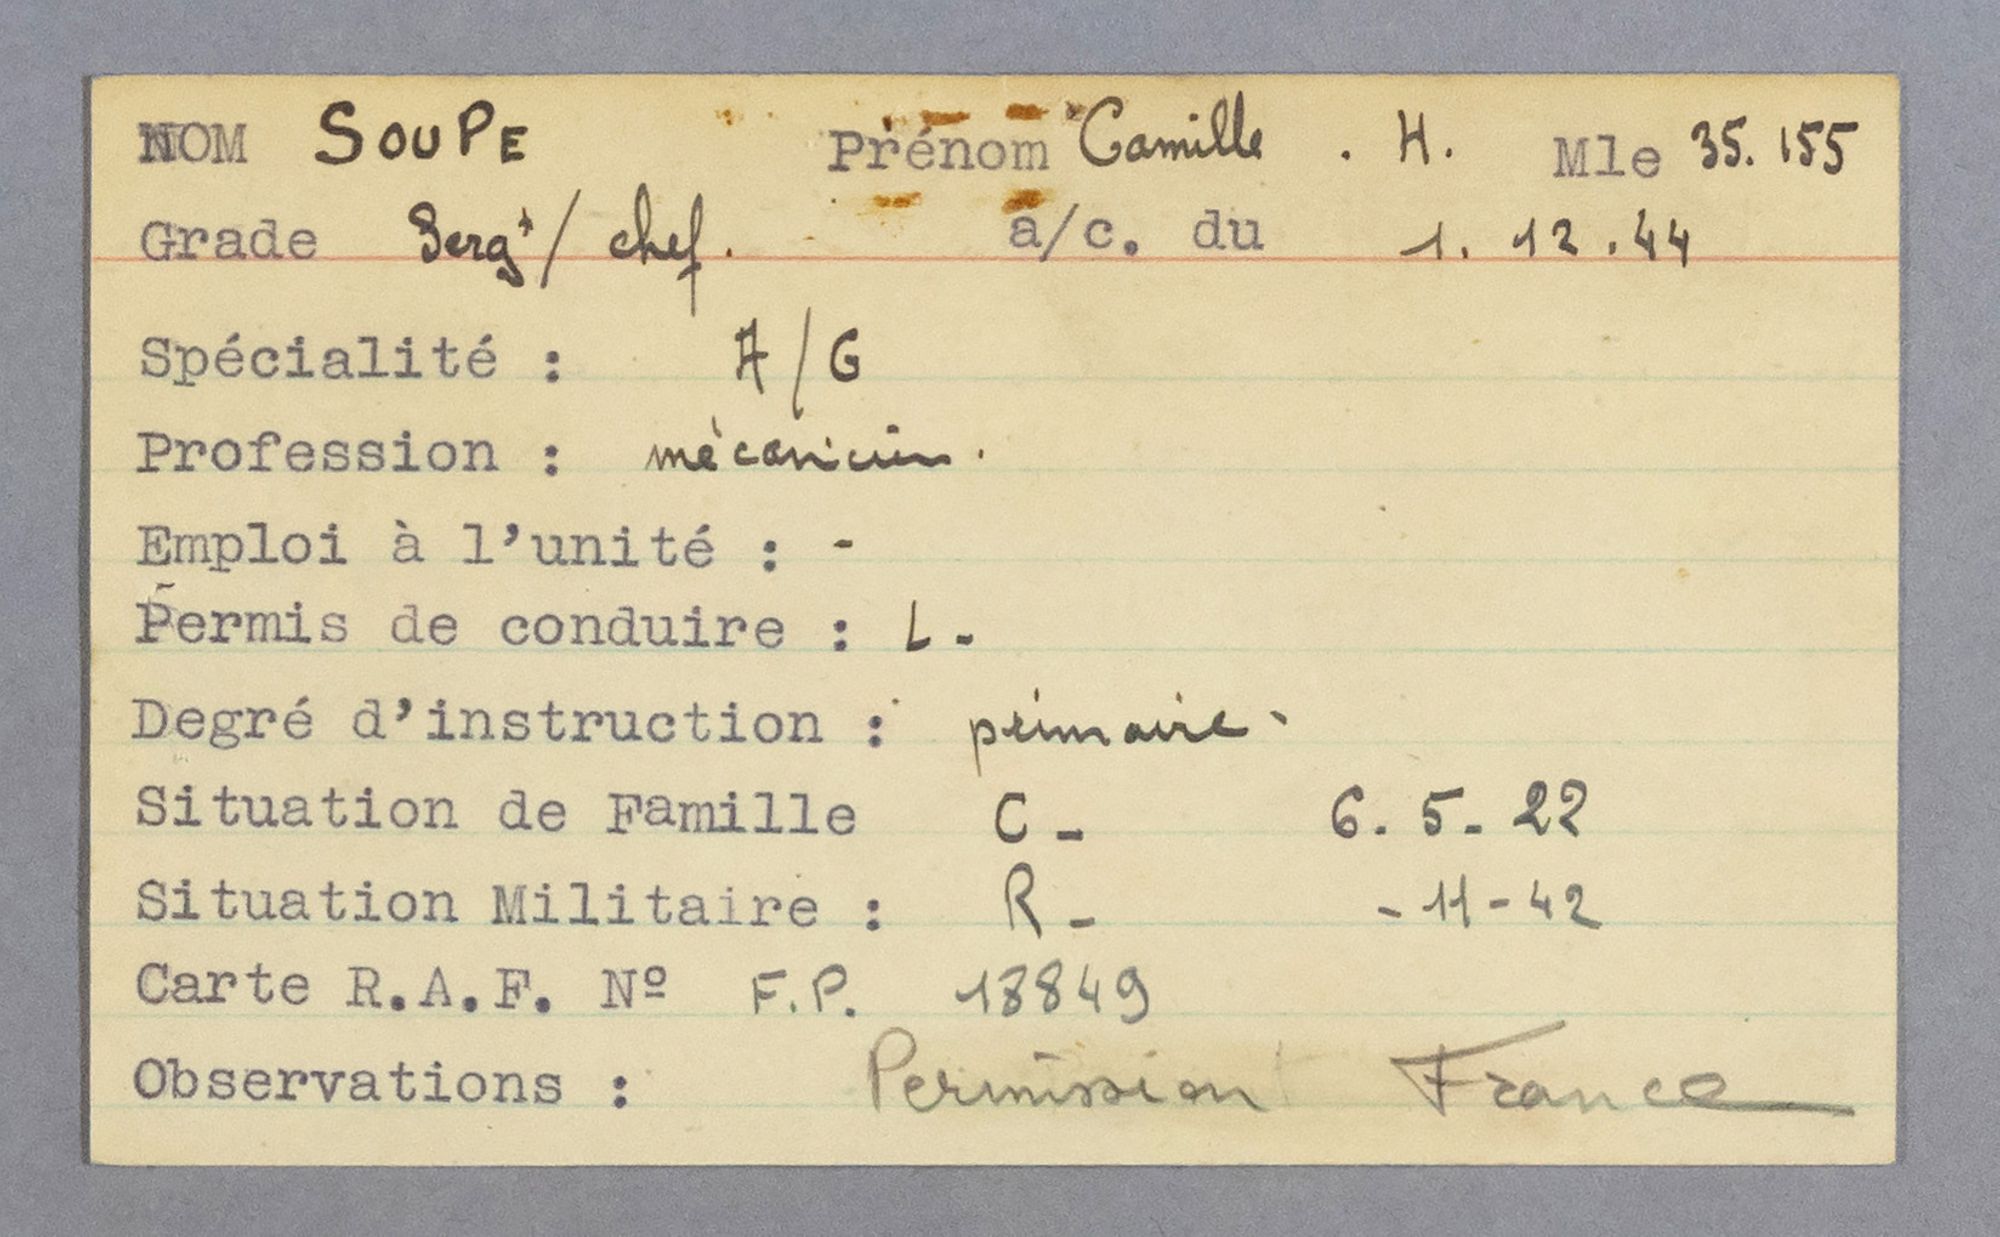 NOM SOUPE Prénom Camille . H. Mle 35.155
Grade Sergt/chef. a/c. du 1.12.44
Spécialité : A/G
Profession : mécanicien.
Emploi à l'unité : -
Permis de conduire : L-
Degré d'instruction : primaire-
Situation de Famille C- 6.5-22
Situation Militaire : R- -11-42
Carte R.A.F. Nº F.P. 18849
Observations : Permission France